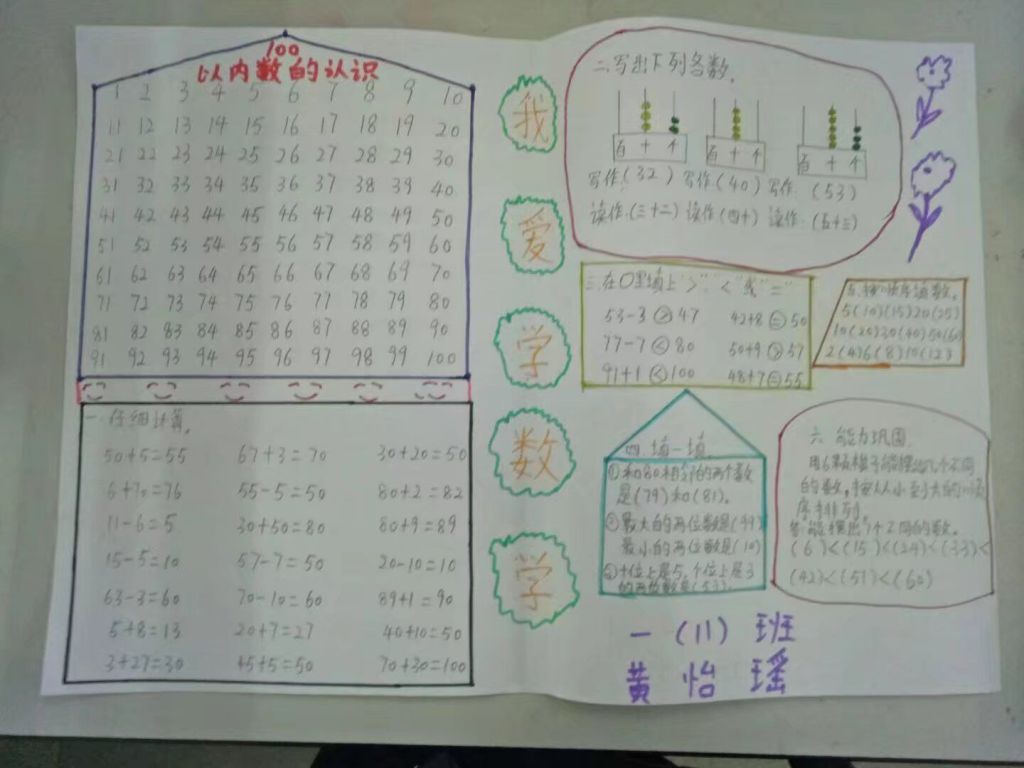 100
以内数的认识
1 2 3 4 5 6 7 8 9 10
11 12 13 14 15 16 17 18 19 20
21 22 23 24 25 26 27 28 29 30
31 32 33 34 35 36 37 38 39 40
41 42 43 44 45 46 47 48 49 50
51 52 53 54 55 56 57 58 59 60
61 62 63 64 65 66 67 68 69 70
71 72 73 74 75 76 77 78 79 80
81 82 83 84 85 86 87 88 89 90
91 92 93 94 95 96 97 98 99 100
一 仔细计算。
50+5=55 67+3=70 30+20=50
6+70=76 55-5=50 80+2=82
11-6=5 30+50=80 80+9=89
15-5=10 57-7=50 20-10=10
63-3=60 70-10=60 89+1=90
5+8=13 20+7=27 40+10=50
3+27=30 45+5=50 70+30=100
我
爱
学
数
学
二.写出下列各数。
百 十 个 百 十 个 百 十 个
写作(32) 写作(40) 写作:(53)
读作:(三十二) 读作(四十) 读作:(五十三)
三.在○里填上">"、"<"或"="
53-3>47 42+8=50
77-7<80 50+9>57
91+1<100 48+7=55
5(10)(15)20(25)
10(20)30(40)50(60)
2(4)6(8)10(12)
四.填一填
①和80相邻的两个数
是(79)和(81)。
②最大的两位数是(99)
最小的两位数是(10)
③十位上是5,个位上是3
的两位数是(53).
六 能力巩固
用6颗珠子能摆出几个不同
的数,按从小至大的顺
序排列。
答:能摆出7个不同的数。
(6)<(15)<(24)<(33)<
(42)<(51)<(60)
一(11)班
黄怡瑶